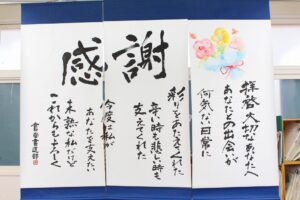 感謝
拝啓 大切なあなたへ
あなたとの出会いが
何気ない日常に
彩りをあたえてくれた
辛い時も悲しい時も
支えてくれた
今度は私が
あなたを支えたい
未熟な私だけど
これからもよろしく